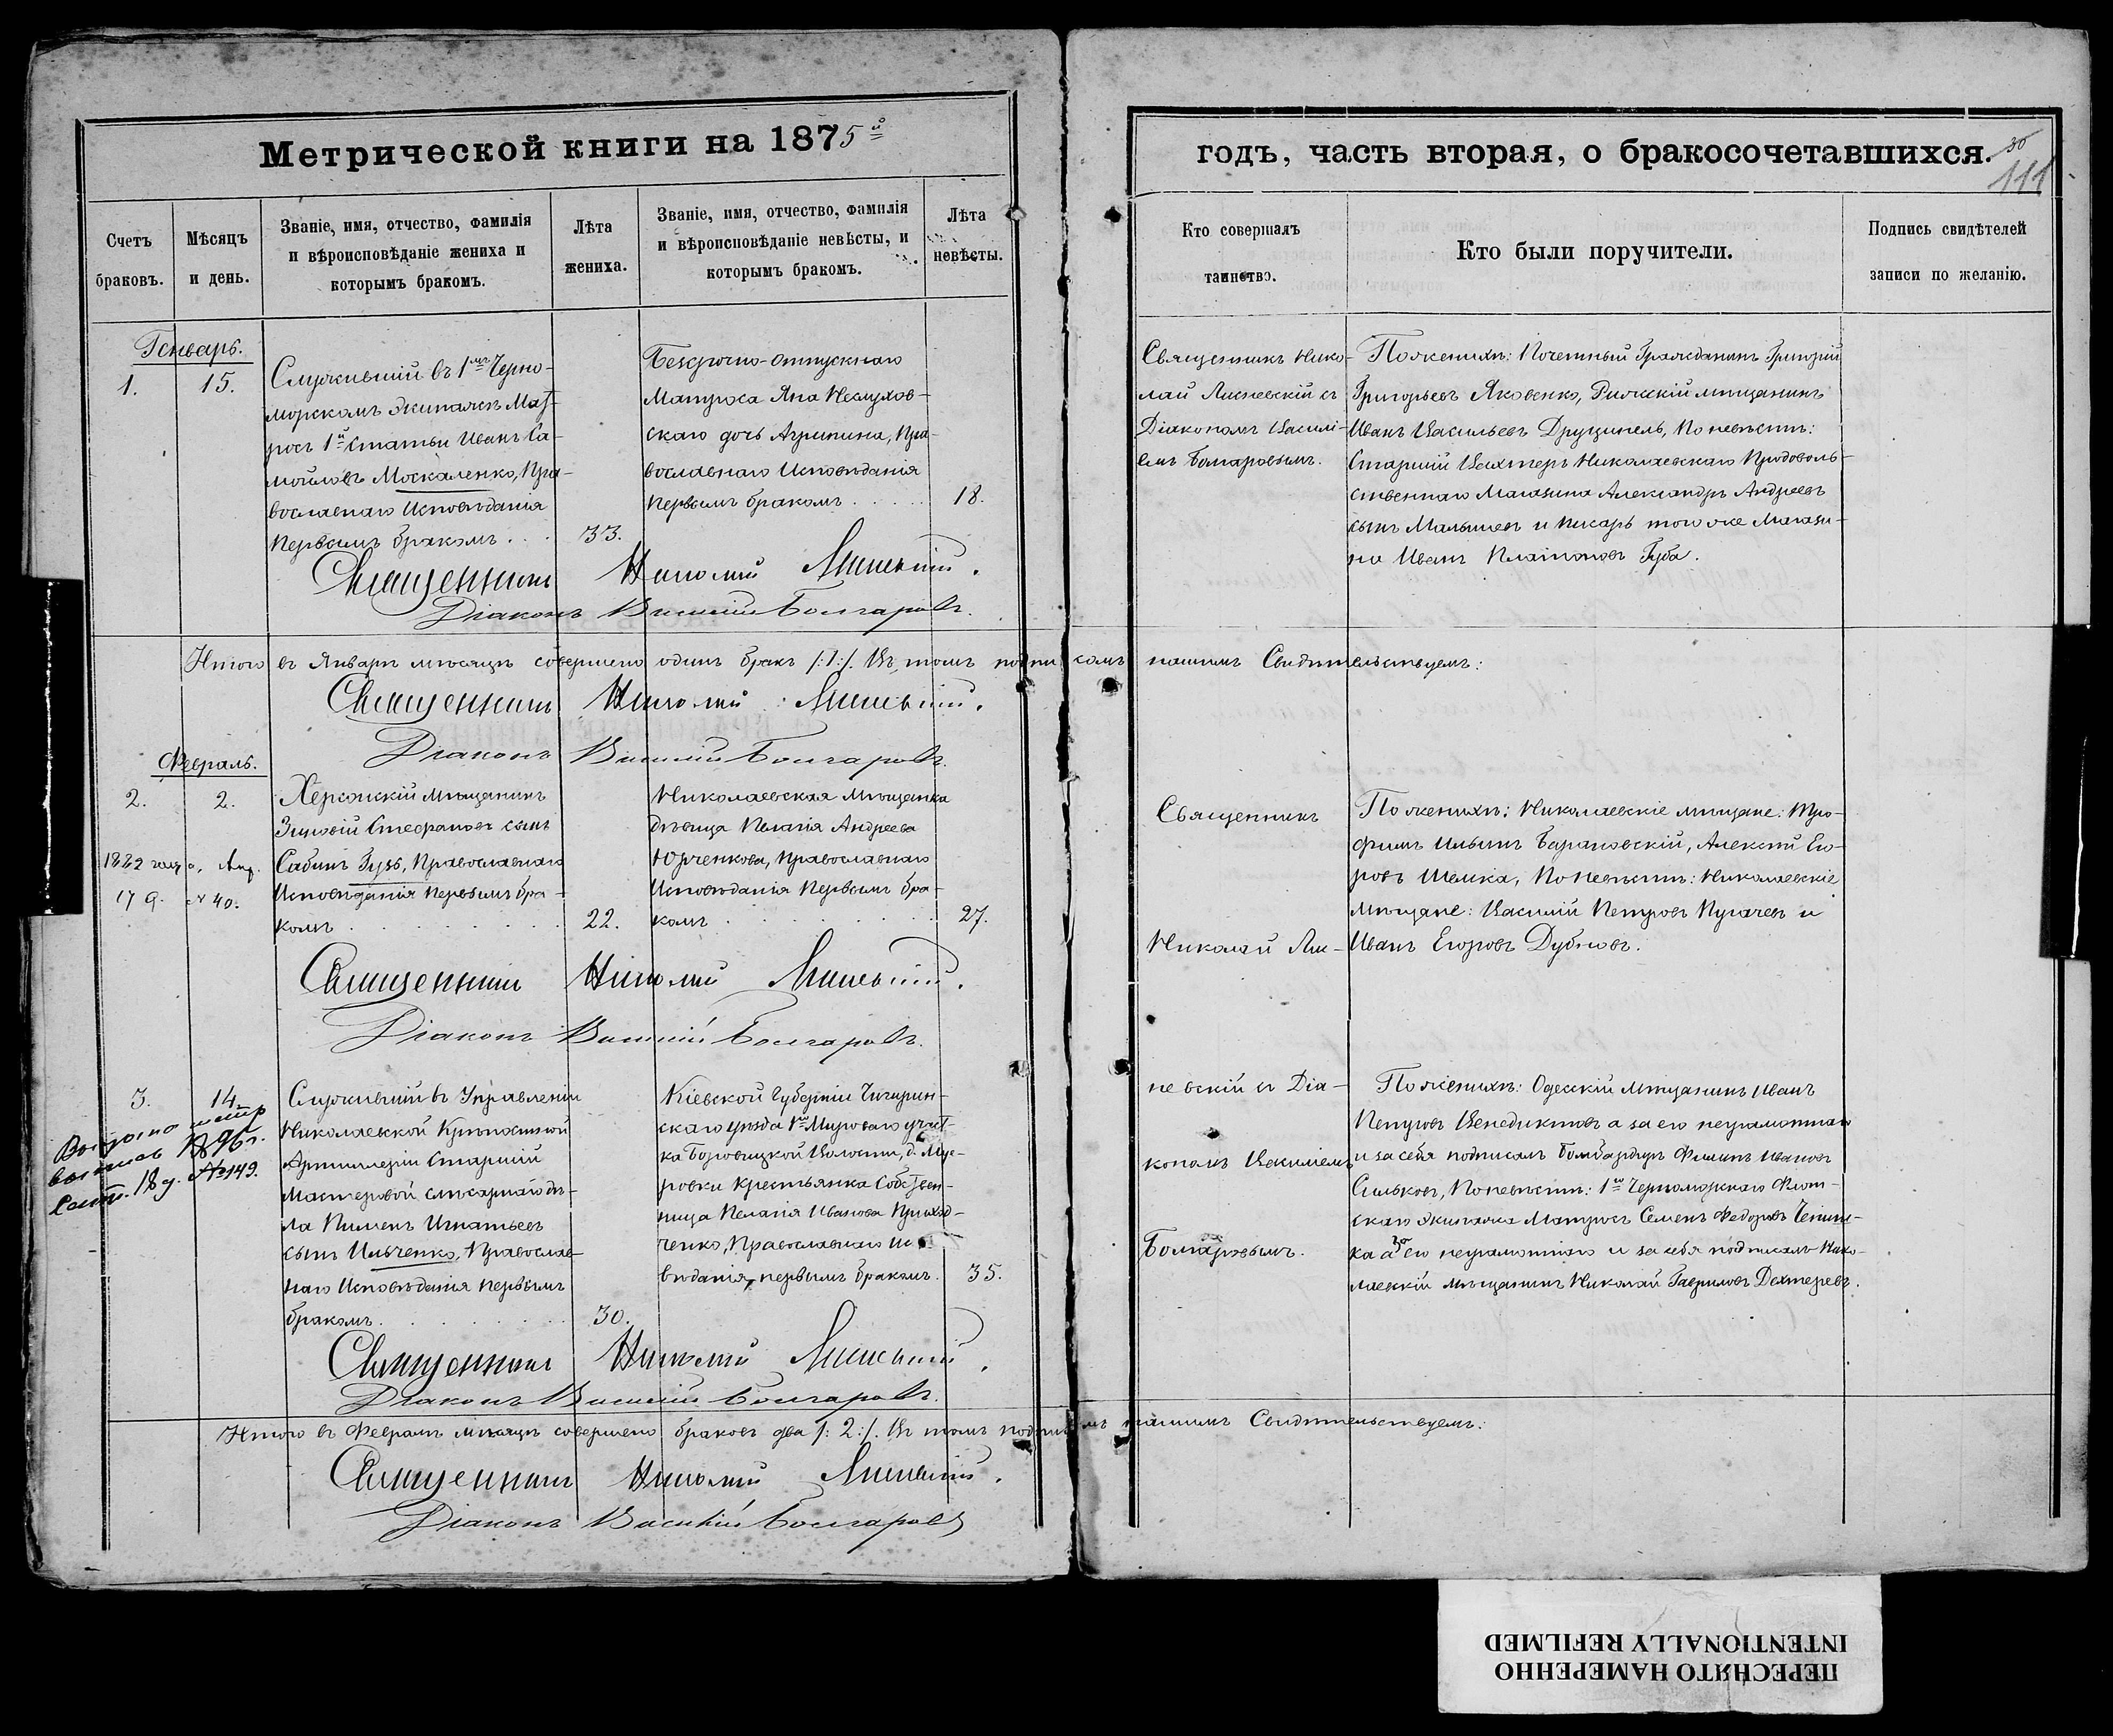 Метрической книги на 1875й
годъ, часть вторая, о бракосочетавшихся.
30
111
Счетъ браковъ.
Мѣсяцъ и день.
Званіе, имя, отчество, фамилія
и вѣроисповѣданіе жениха и
которымъ бракомъ.
Лѣта
жениха.
Званіе, имя, отчество, фамилія
и вѣроисповѣданіе невѣсты, и
которымъ бракомъ.
Лѣта
невѣсты.
Кто совершалъ
таинство.
Кто были поручители.
Подпись свидѣтелей
записи по желанію.
Генварь.
1.
15.
Служившій въ 1мъ Черно-
морскомъ Экипажѣ Мат-
росъ 1й Статьи Иванъ Са-
мойловъ Москаленко, Пра-
вославнаго Исповѣданія
Первымъ бракомъ . . .
33.
Безсрочно-отпускнаго
Матроса Яна Неслухов-
скаго дочь Агрипина, Пра-
вославнаго Исповѣданія
Первымъ бракомъ . . . . .
18.
Священникъ Нико-
лай Лисневскій съ
Діакономъ Василі-
емъ Болгаровымъ.
По женихѣ: Почетный Гражданинъ Григорій
Григорьевъ Яковенко, Ряжскій мѣщанинъ
Иванъ Васильевъ Друцинель, По невѣстѣ:
Старшій Вахтеръ Николаевскаго Продоволь-
ственнаго Магазина Александръ Андреевъ
сынъ Малышевъ и писарь того же Магази-
на Иванъ Платоновъ Губа.
Священникъ Николай
Діаконъ Василій Болгаровъ.
Итого въ Январѣ мѣсяцѣ совершено одинъ бракъ /:1:/. Въ томъ подписомъ нашимъ Свидѣтельствуемъ:
Священникъ Николай
Діаконъ Василій Болгаровъ.
Февраль.
2.
2.
1882 года, Апр.
17 д. № 40.
Херсонскій Мѣщанинъ
Зиновій Стефановъ сынъ
Сабинъ Гузь, Православнаго
Исповѣданія Первымъ бра-
комъ . . . . . . . .
22.
Николаевская Мѣщанка
дѣвица Пелагія Андреева
Юрченкова, Православнаго
Исповѣданія Первымъ бра-
комъ . . . . . . . .
27.
Священникъ
Николай Лис-
По женихѣ: Николаевскіе мѣщане: Тро-
фимъ Ильинъ Барановскій, Алексѣй Его-
ровъ Шемка, По невѣстѣ: Николаевскіе
Мѣщане: Василій Петровъ Пугачевъ и
Иванъ Егоровъ Дубковъ.
Священникъ Николай
Діаконъ Василій Болгаровъ.
3.
14.
Выдана метр
выпись 1896 г.
Сент. 18 д. №149.
Служившій въ Управленіи
Николаевской Крѣпостной
Артиллеріи Старшій
Мастеровой слѣсарнаго дѣ-
ла Пименъ Игнатьевъ
сынъ Ильченко, Православ-
наго Исповѣданія Первымъ
бракомъ . . . . . . . .
30.
Кіевской Губерніи Чигирин-
скаго уѣзда 1го Мироваго участ-
ка Боровицкой Волости, д. Муд-
ровки Крестьянка Собствен-
ница Пелагія Иванова Приход-
ченко, Православнаго Испо
вѣданія, первымъ бракомъ.
35.
невскій съ Діа-
кономъ Василіемъ
Болгаровымъ.
По женихѣ: Одесскій мѣщанинъ Иванъ
Петровъ Венедиктовъ а за его неграмотнаго
и за себя подписалъ Бомбардиръ Филипъ Ивановъ
Сильковъ, По невѣстѣ: 1го Черноморскаго Флот-
скаго Экипажа Матросъ Семенъ Федоровъ
ка а за его неграмотнаго и за себя подписалъ Нико-
лаевскій мѣщанинъ Николай Гавриловъ Дехтеревъ.
Священникъ Николай
Діаконъ Василій Болгаровъ.
Итого въ Февралѣ мѣсяцѣ совершено браковъ два /:2:/. Въ томъ нашимъ Свидѣтельствуемъ:
Священникъ Николай
Діаконъ Василій Болгаровъ
ПЕРЕСНЯТО НАМЕРЕННО
INTENTIONALLY REFILMED